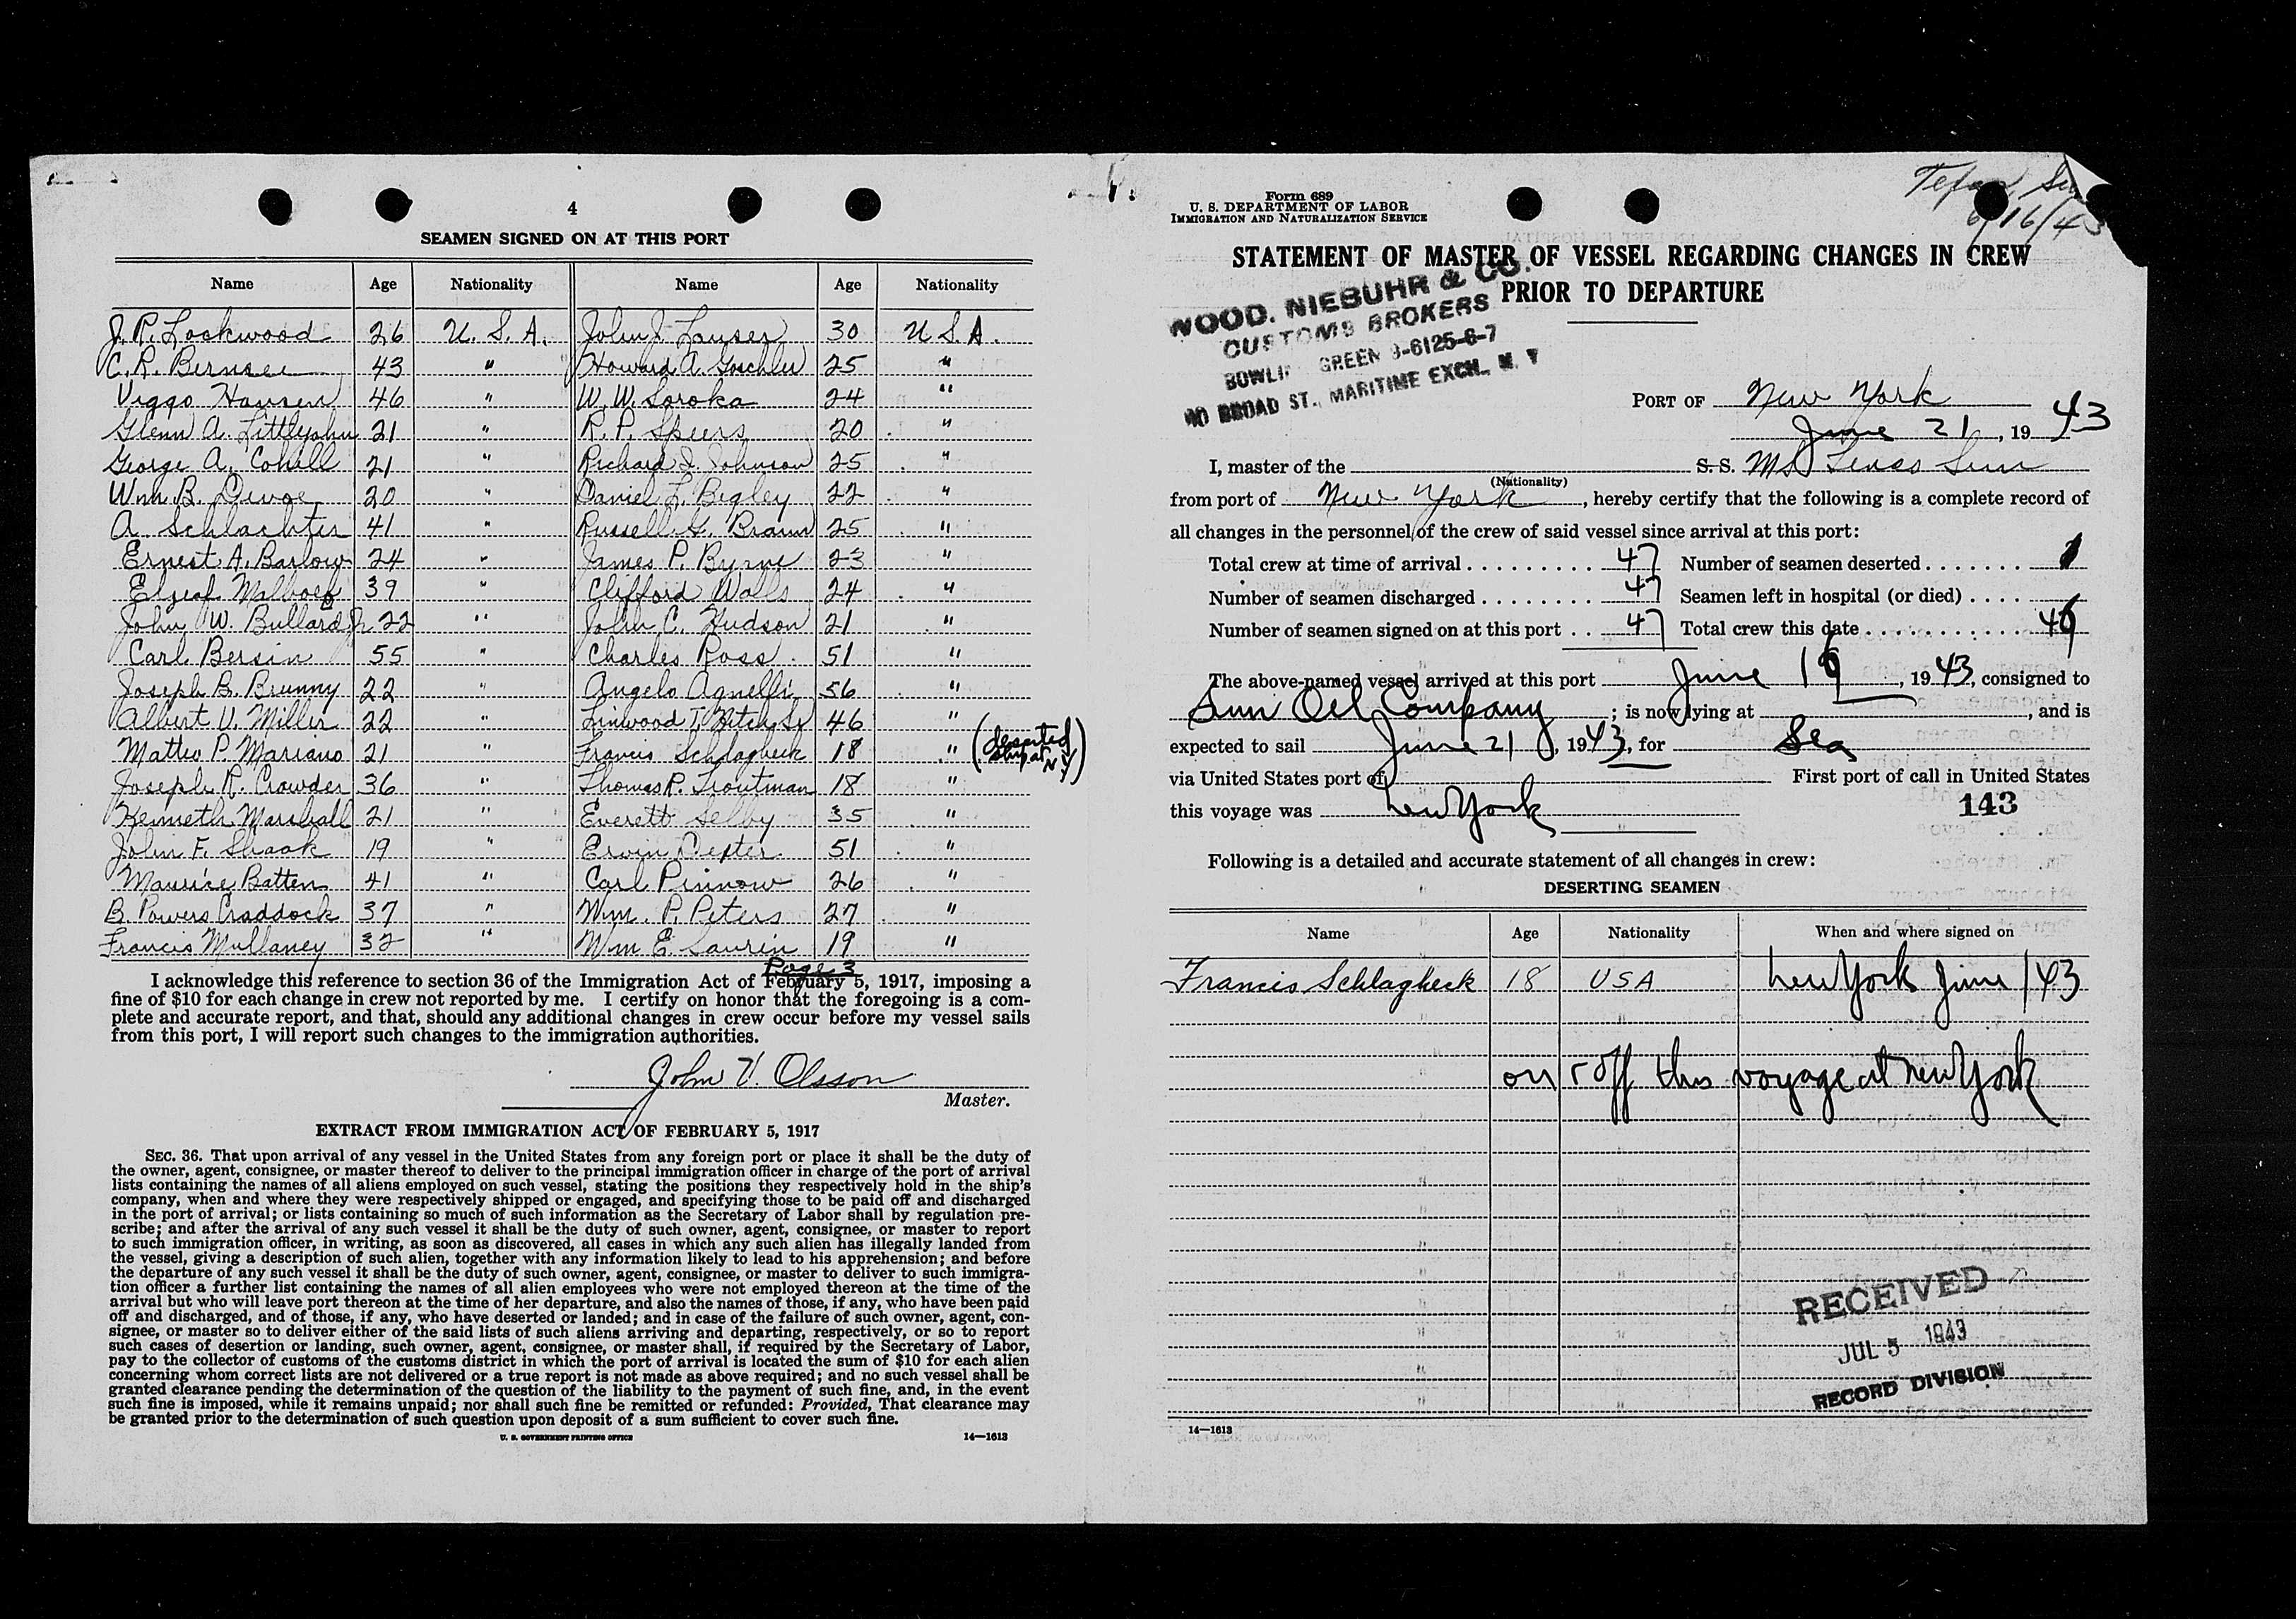 4
SEAMEN SIGNED ON AT THIS PORT
Name Age Nationality Name Age Nationality
J. R. Lockwood 26 U. S. A. John J. Lauser 30 U S A.
C. R. Bernsee 43 " Howard A. Goschler 25 "
Viggo Hansen 46 " W. W. Soroka 24 "
Glenn A. Littlejohn 21 " R. P. Speers 20 "
George A. Cohill 21 " Richard J. Johnson 25 "
Wm. B. Devoe 20 " Daniel L. Begley 22 "
A. Schlachter 41 " Russell G. Braun 25 "
Ernest A. Barlow 24 " James P. Byrne 23 "
39 " Clifford Walls 24 "
John W. Bullard Jr 22 " John C. Hudson 21 "
Carl Bersin 55 " Charles Ross 51 "
Joseph B. Brunny 22 " Angelo Agnelli 56 "
Albert V. Miller 22 " Linwood T. Hitch Sr 46 "
Matteo P. Mariano 21 " Francis Schlagheck 18 " (deserted ship at N Y)
Joseph R. Crowder 36 " Thomas R. Troutman 18 "
Kenneth Marshall 21 " Everett Selby 35 "
John F. Shaak 19 " Ervin Depter 51 "
Maurice Batten 41 " Carl Pinnow 26 "
B. Powers Craddock 37 " Wm. P. Peters 27 "
Francis Mullaney 32 " Wm E. Laurin 19 "
Page 3
I acknowledge this reference to section 36 of the Immigration Act of February 5, 1917, imposing a
fine of $10 for each change in crew not reported by me. I certify on honor that the foregoing is a com-
plete and accurate report, and that, should any additional changes in crew occur before my vessel sails
from this port, I will report such changes to the immigration authorities.
John V. Olsson
Master.
EXTRACT FROM IMMIGRATION ACT OF FEBRUARY 5, 1917
SEC. 36. That upon arrival of any vessel in the United States from any foreign port or place it shall be the duty of
the owner, agent, consignee, or master thereof to deliver to the principal immigration officer in charge of the port of arrival
lists containing the names of all aliens employed on such vessel, stating the positions they respectively hold in the ship's
company, when and where they were respectively shipped or engaged, and specifying those to be paid off and discharged
in the port of arrival; or lists containing so much of such information as the Secretary of Labor shall by regulation pre-
scribe; and after the arrival of any such vessel it shall be the duty of such owner, agent, consignee, or master to report
to such immigration officer, in writing, as soon as discovered, all cases in which any such alien has illegally landed from
the vessel, giving a description of such alien, together with any information likely to lead to his apprehension; and before
the departure of any such vessel it shall be the duty of such owner, agent, consignee, or master to deliver to such immigra-
tion officer a further list containing the names of all alien employees who were not employed thereon at the time of the
arrival but who will leave port thereon at the time of her departure, and also the names of those, if any, who have been paid
off and discharged, and of those, if any, who have deserted or landed; and in case of the failure of such owner, agent, con-
signee, or master so to deliver either of the said lists of such aliens arriving and departing, respectively, or so to report
such cases of desertion or landing, such owner, agent, consignee, or master shall, if required by the Secretary of Labor,
pay to the collector of customs of the customs district in which the port of arrival is located the sum of $10 for each alien
concerning whom correct lists are not delivered or a true report is not made as above required; and no such vessel shall be
granted clearance pending the determination of the question of the liability to the payment of such fine, and, in the event
such fine is imposed, while it remains unpaid; nor shall such fine be remitted or refunded: Provided, That clearance may
be granted prior to the determination of such question upon deposit of a sum sufficient to cover such fine.
U. S. GOVERNMENT PRINTING OFFICE 14—1613
Form 689
U. S. DEPARTMENT OF LABOR
IMMIGRATION AND NATURALIZATION SERVICE
6/16/43
STATEMENT OF MASTER OF VESSEL REGARDING CHANGES IN CREW
PRIOR TO DEPARTURE
WOOD, NIEBUHR & CO.
CUSTOMS BROKERS
BOWLI GREEN 9-6125-6-7
40 BROAD ST., MARITIME EXCH., N. Y
PORT OF New York
June 21, 1943
I, master of the S. S. MS Texas Sun
(Nationality)
from port of New York, hereby certify that the following is a complete record of
all changes in the personnel of the crew of said vessel since arrival at this port:
Total crew at time of arrival 47 Number of seamen deserted 1
Number of seamen discharged 47 Seamen left in hospital (or died)
Number of seamen signed on at this port 47 Total crew this date 46
The above-named vessel arrived at this port June 16, 1943, consigned to
Sun Oil Company; is now lying at , and is
expected to sail June 21, 1943, for Sea
via United States port of First port of call in United States
this voyage was New York 143
Following is a detailed and accurate statement of all changes in crew:
DESERTING SEAMEN
Name Age Nationality When and where signed on
Francis Schlagheck 18 USA New York June /43
on & off this voyage at New York
RECEIVED
JUL 5 1943
RECORD DIVISION
14—1613